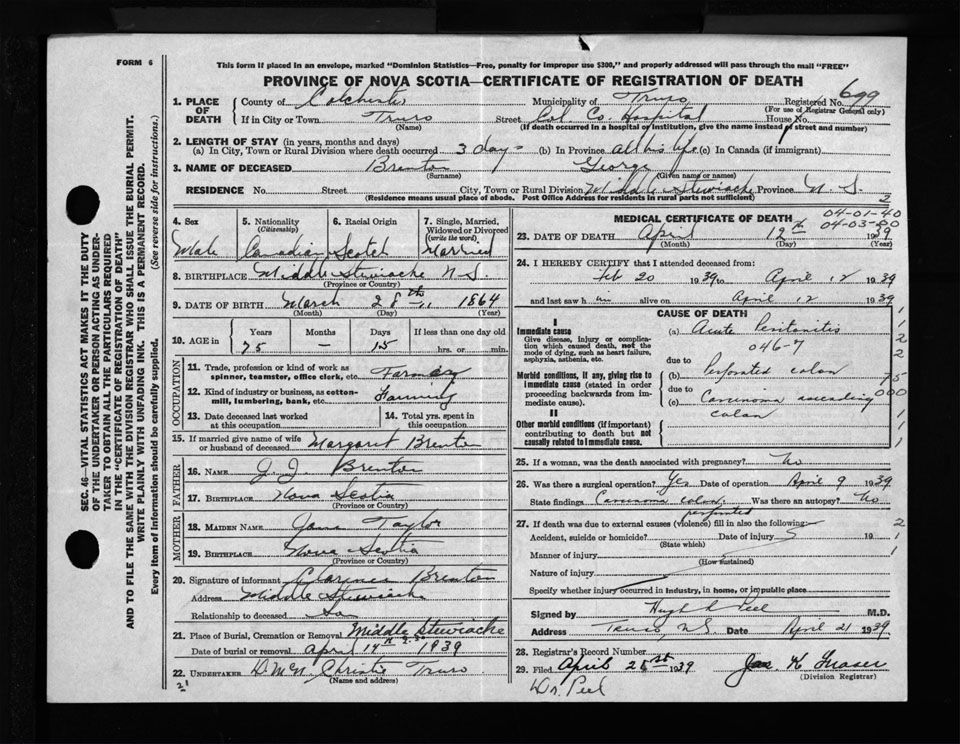 FORM 6
This form if placed in an envelope, marked "Dominion Statistics—Free, penalty for improper use $300," and properly addressed will pass through the mail "FREE"
PROVINCE OF NOVA SCOTIA—CERTIFICATE OF REGISTRATION OF DEATH
SEC. 46—VITAL STATISTICS ACT MAKES IT THE DUTY
OF THE UNDERTAKER OR PERSON ACTING AS UNDER-
TAKER TO OBTAIN ALL THE PARTICULARS REQUIRED
IN THE "CERTIFICATE OF REGISTRATION OF DEATH"
AND TO FILE THE SAME WITH THE DIVISION REGISTRAR WHO SHALL ISSUE THE BURIAL PERMIT.
WRITE PLAINLY WITH UNFADING INK. THIS IS A PERMANENT RECORD.
Every item of Information should be carefully supplied. (See reverse side for instructions.)
1. PLACE OF DEATH County of Colchester Municipality of Truro Registered No. 699
(For use of Registrar General only)
If in City or Town Truro Street Col. Co. Hospital House No.
(Name) (If death occurred in a hospital or institution, give the name instead of street and number)
2. LENGTH OF STAY (in years, months and days)
(a) In City, Town or Rural Division where death occurred 3 days (b) In Province All his life (c) In Canada (if immigrant)
3. NAME OF DECEASED Brenton George
(Surname) (Given name or names)
RESIDENCE No. Street City, Town or Rural Division Middle Stewiacke Province N. S.
(Residence means usual place of abode. Post Office Address for residents in rural parts not sufficient) 2
4. Sex 5. Nationality (Citizenship) 6. Racial Origin 7. Single, Married, Widowed or Divorced (write the word)
Male Canadian Scotch Married
8. BIRTHPLACE Middle Stewiacke N.S.
(Province or Country)
9. DATE OF BIRTH March 28th 1864
(Month) (Day) (Year)
10. AGE in Years Months Days If less than one day old
75 — 15 hrs. or min.
OCCUPATION
11. Trade, profession or kind of work as spinner, teamster, office clerk, etc. Farmer
12. Kind of industry or business, as cotton-mill, lumbering, bank, etc. Farming
13. Date deceased last worked at this occupation 14. Total yrs. spent in this occupation
15. If married give name of wife or husband of deceased Margaret Brenton
FATHER
16. NAME J J Brenton
17. BIRTHPLACE Nova Scotia
(Province or Country)
MOTHER
18. MAIDEN NAME Jane Taylor
19. BIRTHPLACE Nova Scotia
(Province or Country)
20. Signature of informant Clarence Brenton
Address Middle Stewiacke
Relationship to deceased Son
21. Place of Burial, Cremation or Removal Middle Stewiacke
Date of burial or removal April 14th 1939
22. UNDERTAKER Christie Truro
(Name and address)
MEDICAL CERTIFICATE OF DEATH
04-01-40
04-03-00
23. DATE OF DEATH April 12th 1939
(Month) (Day) (Year)
24. I HEREBY CERTIFY that I attended deceased from
Feb 20 1939 to April 12 1939
and last saw him alive on April 12 1939
CAUSE OF DEATH
I
Immediate cause
Give disease, injury or complication which caused death, not the mode of dying, such as heart failure, asphyxia, asthenia, etc.
(a) Acute Peritonitis
046-7
due to
Morbid conditions, if any, giving rise to immediate cause (stated in order proceeding backwards from immediate cause).
(b) Perforated colon
due to
(c) Carcinoma ascending
colon
II
Other morbid conditions (if important) contributing to death but not causally related to immediate cause.
25. If a woman, was the death associated with pregnancy? No
26. Was there a surgical operation? Yes Date of operation April 9 1939
State findings Carcinoma colon perforated Was there an autopsy? No
27. If death was due to external causes (violence) fill in also the following:
Accident, suicide or homicide? Date of injury 19
(State which)
Manner of injury
(How sustained)
Nature of injury
Specify whether injury occurred in industry, in home, or in public place
Signed by Hugh Peel M.D.
Address Truro, N.S. Date April 21 1939
28. Registrar's Record Number
29. Filed April 25st 1939 Jas K Fraser
(Division Registrar)
Dr. Peel